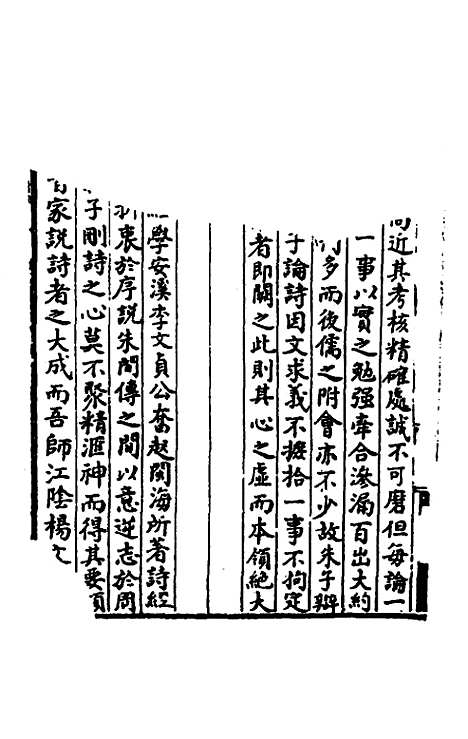 近其考核精確處誠不可磨但每論一
一事以實之勉强牽合滲漏百出大約
多而後儒之附會亦不少故朱子辨
子論詩因文求義不摭拾一事不拘定
者即闕之此則其心之虛而本領絕大
學安溪李文貞公奮起閩海所著詩經
衷於序說朱問傳之間以意逆志於周
子刪詩之心莫不聚精滙神而得其要領
家說詩者之大成而吾師江陰楊文